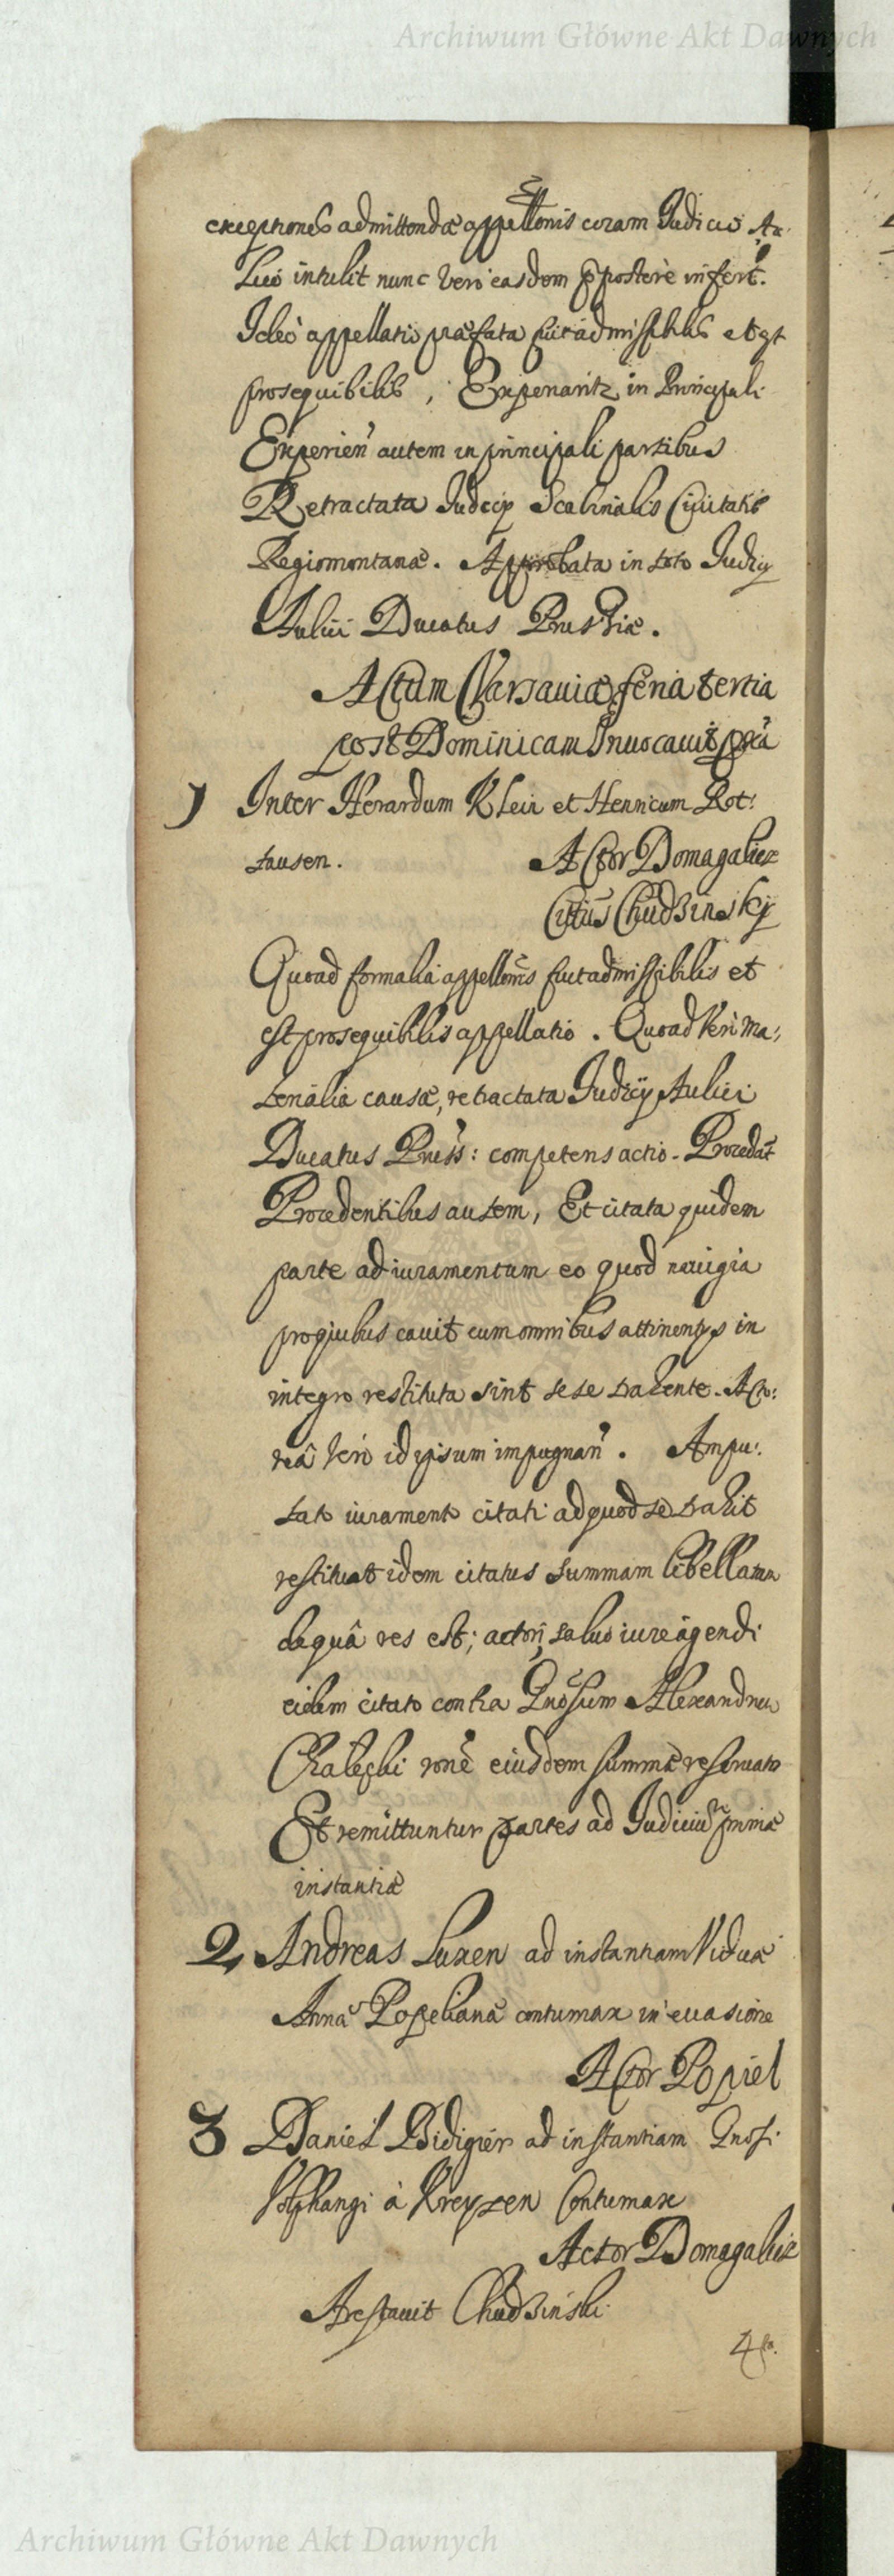 Archiwum Główne Akt Dawnych
exceptiones admittendae appellonis coram Judicio Au
lico intulit nunc vero easdem praepostere infert.
Ideo appellatio praefata fuit admissibilis et est
prosequibilis, Experiantr in Principali
Experien autem in principali partibus
Retractata Judicij Scabinalis Ciuitatis
Regiomontanae. Approbata in toto Judicij
Aulici Ducatus Prussiae.
Actum Varsauiae feria tertia
post Dominicam Inuocauit
1 Inter Herardum Klein et Henricum Rot:
tausen. Actor Domagalicz
Citus Chudzinskij
Quoad formalia appellonis fuit admissibilis et
est prosequibilis appellatio. Quoad vero ma:
terialia causae, retractata Judicij Aulici
Ducatus Pruss: competens actio. Procedat
Procedentibus autem, Et citata quidem
parte ad iuramentum eo quod nauigia
pro quibus cauit cum omnibus attinentijs in
integro restituta sint sese trahente. Acto:
rea vero id ipsum impugnan. Ampu:
tato iuramento citati ad quod se trahit
restituat idem citatus summam libellatam
de quâ res est; actori, saluo iure agendi
eidem citato contra Gnosum Alexandrum
Chaleski rone eiusdem summae reseruato
Et remittuntur partes ad Judicium primae
instantiae
2 Andreas Luxen ad instantiam Viduae
Annae Popelianae contumax in euasione
Actor Popiel
3 Daniel Bidigier ad instantiam Gnosi
Volphangi à Kreyzen Contumax
Actor Domagalicz
Arestauit Chudzinski
4
Archiwum Główne Akt Dawnych